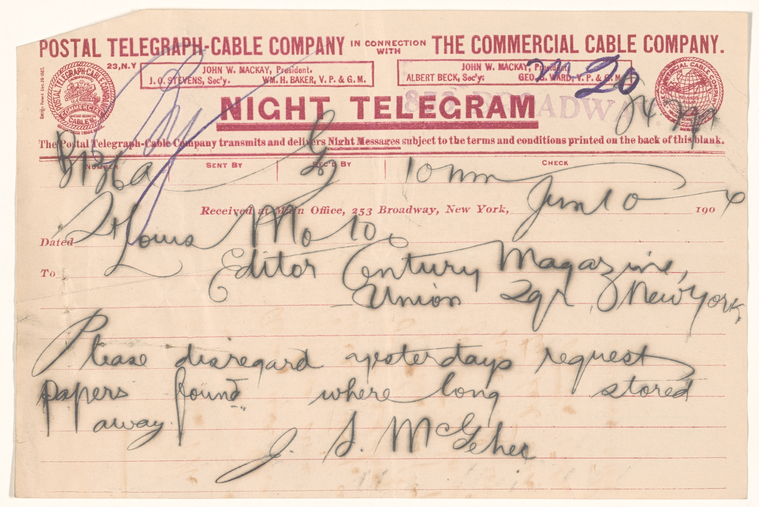 POSTAL TELEGRAPH-CABLE COMPANY IN CONNECTION WITH THE COMMERCIAL CABLE COMPANY.
23, N.Y
JOHN W. MACKAY, President.
J. O. STEVENS, Sec'y. WM. H. BAKER, V. P. & G. M.
JOHN W. MACKAY, President.
ALBERT BECK, Sec'y. GEO. G. WARD, V. P. & G. M.
20
NIGHT TELEGRAM
BROADW
The Postal Telegraph-Cable Company transmits and delivers Night Messages subject to the terms and conditions printed on the back of this blank.
SENT BY REC'D BY CHECK
Received at Main Office, 253 Broadway, New York, Jun 10 1904
Dated St Louis Mo 10
To Editor Century Magazine,
Union Sqr, New York,
Please disregard yesterdays request
papers found where long stored
away.
J. S. McGehee